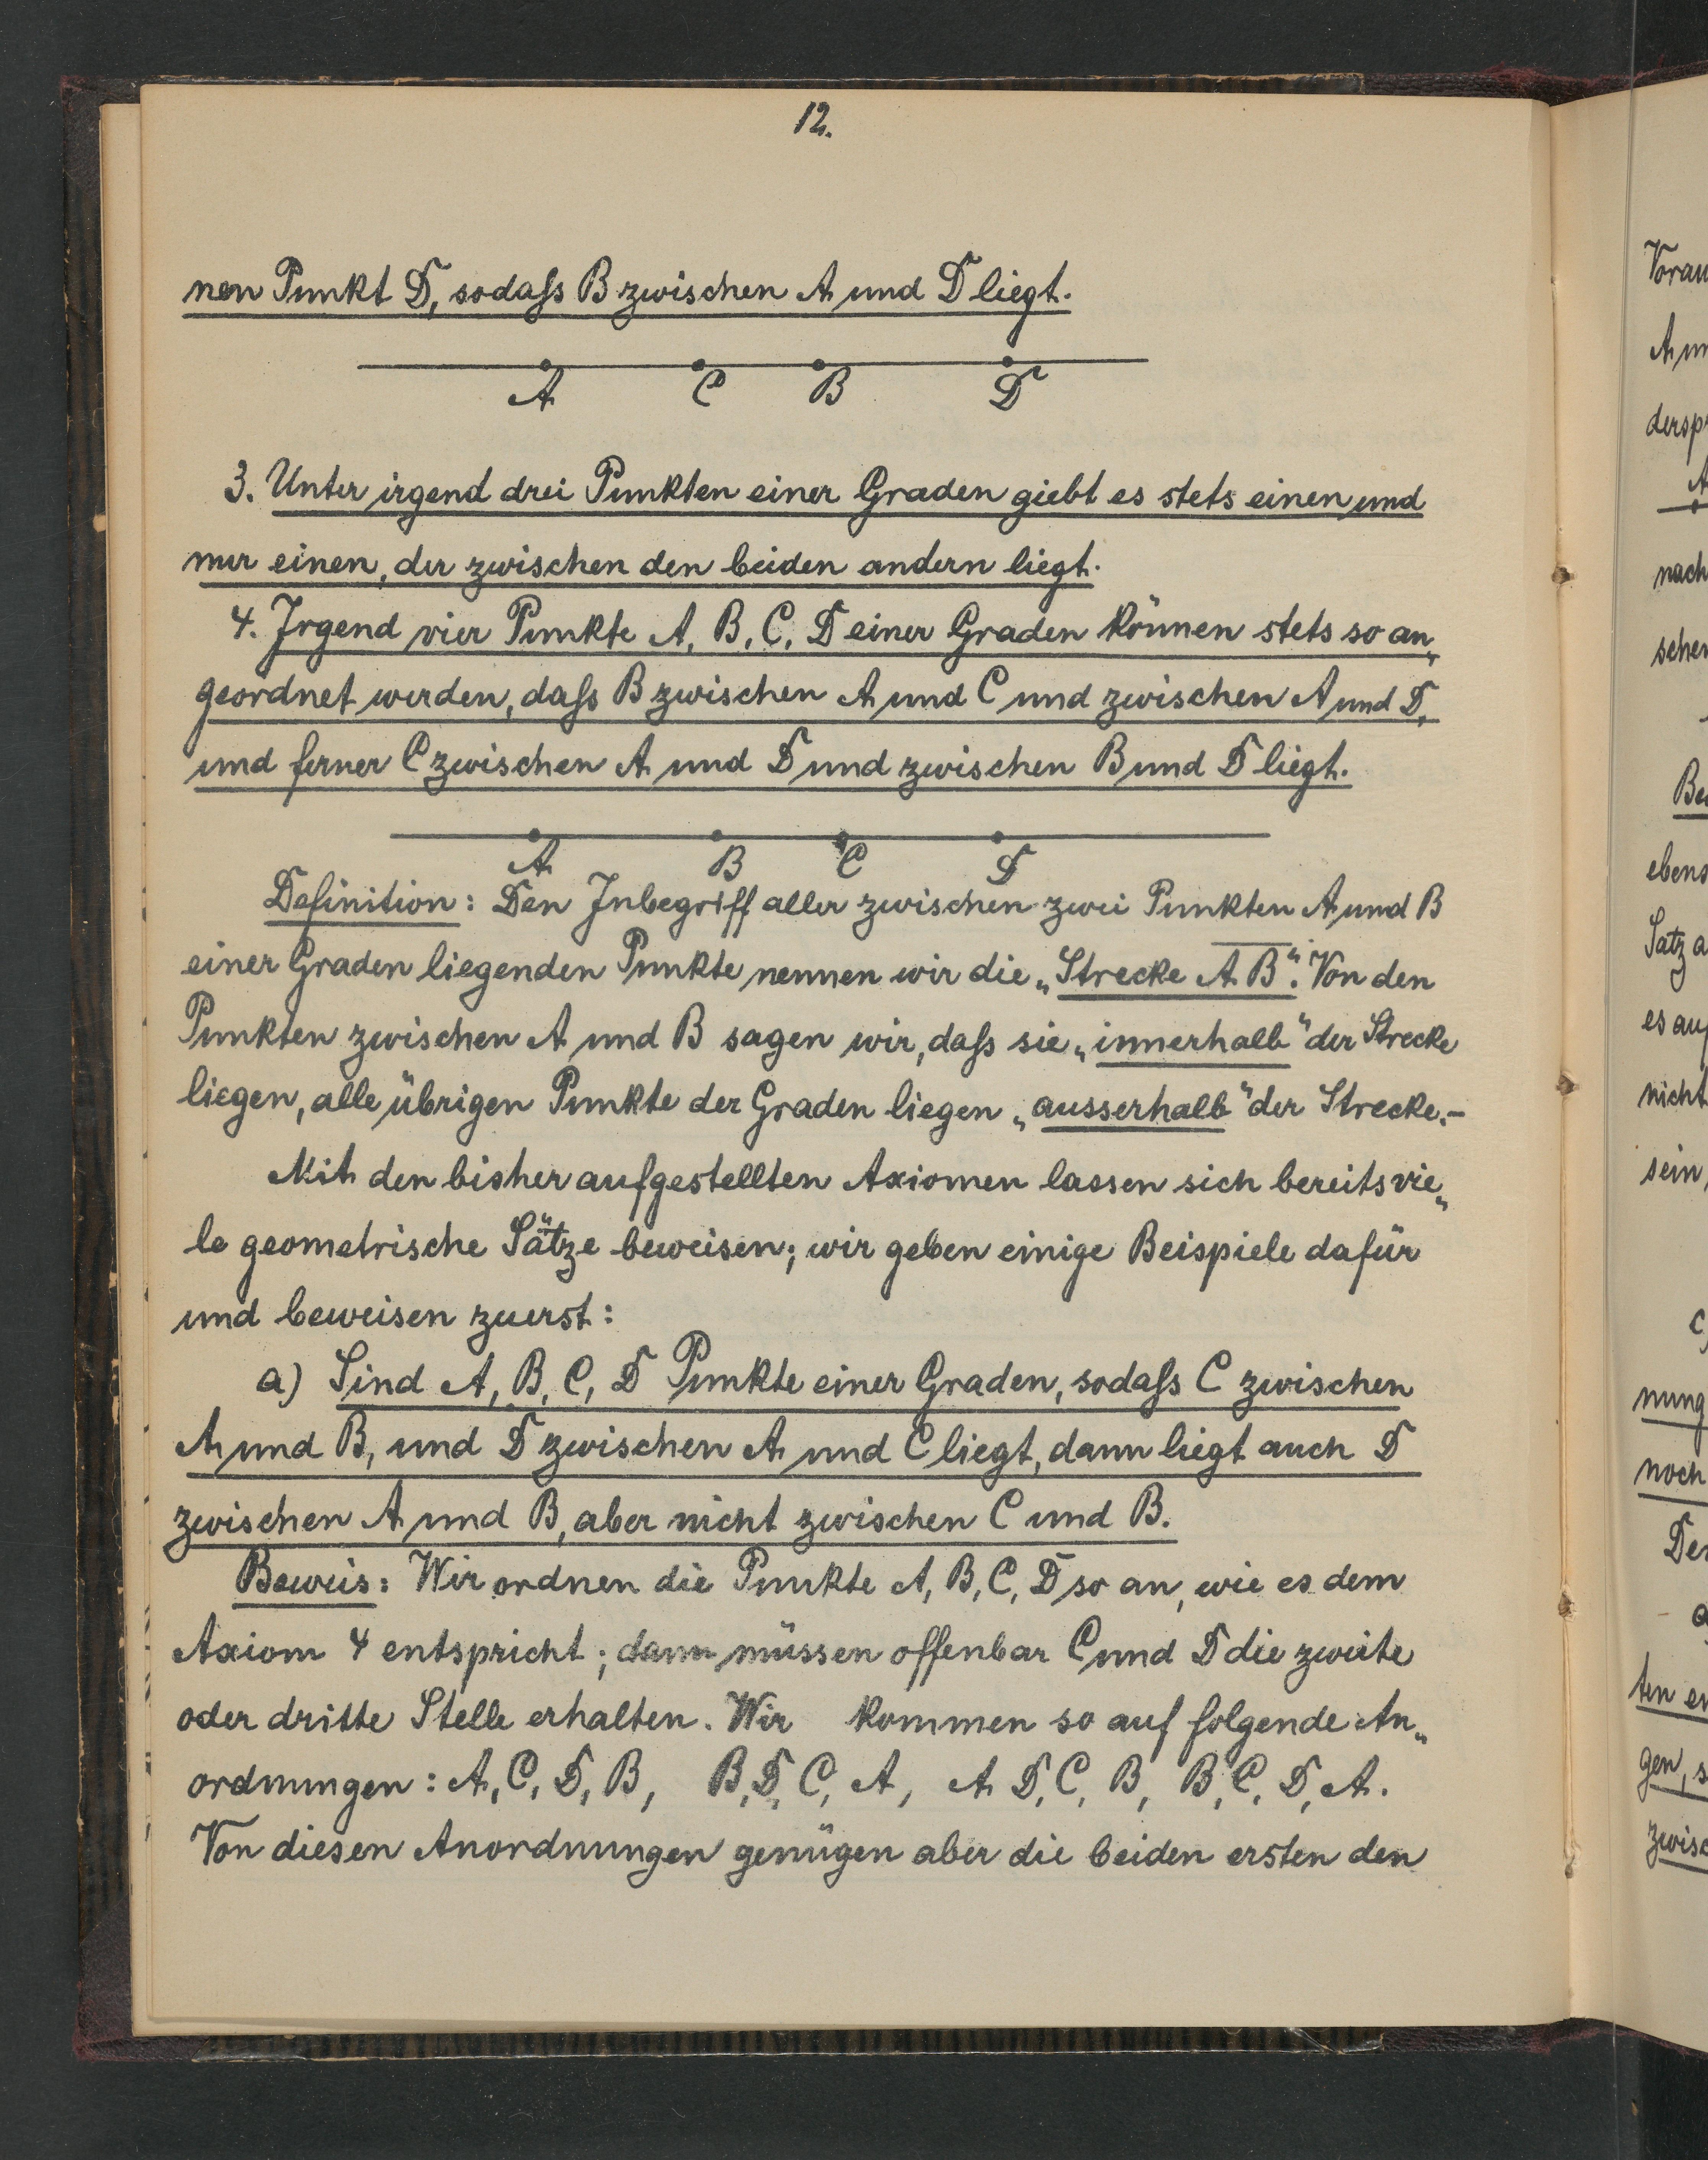 12.
nen Punkt D, sodaſs B zwischen A und D liegt.
A C B D
3. Unter irgend drei Punkten einer Graden giebt es stets einen und
nur einen, der zwischen den beiden andern liegt.
4. Irgend vier Punkte A, B, C, D einer Graden können stets so an„
geordnet werden, daſs B zwischen A und C und zwischen A und D,
und ferner C zwischen A und D und zwischen B und D liegt.
A B C D
Definition: Den Inbegriff aller zwischen zwei Punkten A und B
einer Graden liegenden Punkte nennen wir die „Strecke A B“. Von den
Punkten zwischen A und B sagen wir, daſs sie „innerhalb“ der Strecke
liegen, alle übrigen Punkte der Graden liegen „ausserhalb“ der Strecke.-
Mit den bisher aufgestellten Axiomen lassen sich bereits vie„
le geometrische Sätze beweisen; wir geben einige Beispiele dafür
und beweisen zuerst:
a) Sind A, B, C, D Punkte einer Graden, sodaſs C zwischen
A und B, und D zwischen A und C liegt, dann liegt auch D
zwischen A und B, aber nicht zwischen C und B.
Beweis: Wir ordnen die Punkte A, B, C, D so an, wie es dem
Axiom 4 entspricht; dann müssen offenbar C und D die zweite
oder dritte Stelle erhalten. Wir kommen so auf folgende An„
ordnungen: A, C, D, B, B, D, C, A, A D, C, B, B, C, D, A.
Von diesen Anordnungen genügen aber die beiden ersten den
Vorau
A un
dersp
A
nach
schen
Be
ebens
Satz a
es auf
nicht
sein,
c)
nung
noch
Den
a
ten er
gen, s
zwisc